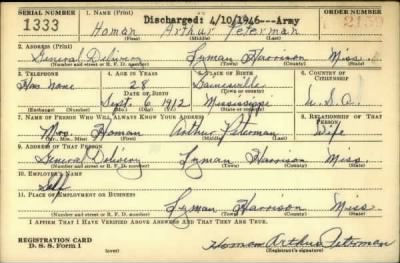 SERIAL NUMBER 1. NAME (Print) ORDER NUMBER
Discharged: 4/10/1946---Army
1333 Homan Arthur Peterman 2159
(First) (Middle) (Last)
2. ADDRESS (Print)
General Delivery Lyman Harrison Miss.
(Number and street or R. F. D. number) (Town) (County) (State)
3. TELEPHONE 4. AGE IN YEARS 5. PLACE OF BIRTH 6. COUNTRY OF CITIZENSHIP
Has None 28 Gainesville
DATE OF BIRTH (Town or county)
Sept. 6, 1912 Mississippi U.S.A.
(Exchange) (Number) (Mo.) (Day) (Yr.) (State or country)
7. NAME OF PERSON WHO WILL ALWAYS KNOW YOUR ADDRESS 8. RELATIONSHIP OF THAT PERSON
Mrs. Homan Arthur Peterman Wife
(Mr., Mrs., Miss) (First) (Middle) (Last)
9. ADDRESS OF THAT PERSON
General Delivery Lyman Harrison Miss.
(Number and street or R. F. D. number) (Town) (County) (State)
10. EMPLOYER'S NAME
Self
11. PLACE OF EMPLOYMENT OR BUSINESS
Lyman Harrison Miss.
(Number and street or R. F. D. number) (Town) (County) (State)
I AFFIRM THAT I HAVE VERIFIED ABOVE ANSWERS AND THAT THEY ARE TRUE.
REGISTRATION CARD
D. S. S. Form 1 (over) Homan Arthur Peterman
(Registrant's signature)